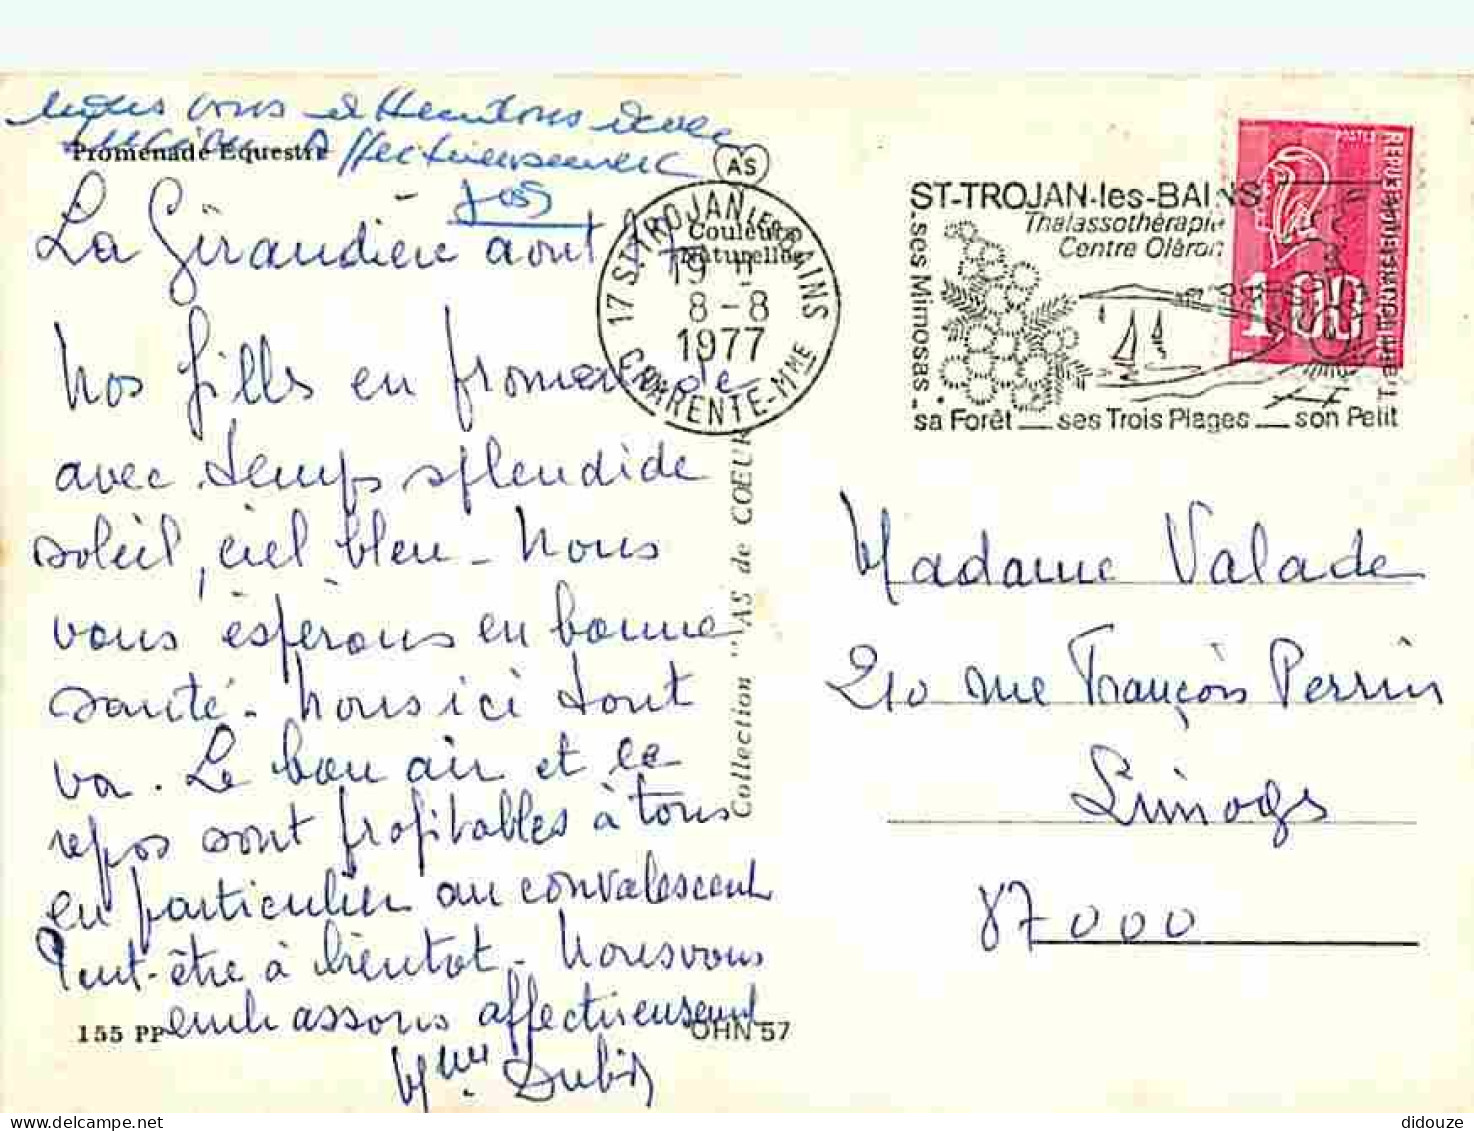 vous et
Promenade Equestre Affectueusement
Jos
AS
La Giraudière août 77
Couleurs
Naturelles
17 ST-TROJAN LES BAINS
19 H
8-8
1977
CHARENTE-MME
ST-TROJAN-les-BAINS
Thalassothérapie
Centre Oléron
..ses Mimosas..
sa Forêt __ ses Trois Plages __ son Petit
Train
POSTES
REPUBLIQUE FRANCAISE
1,00
Nos filles en promenade
avec temps splendide
soleil, ciel bleu - Nous
vous espérons en bonne
santé - Nous ici tout
va. Le bon air et le
repos sont profitables à tous
en particulier au convalescent
Peut-être à bientôt - Nous vous
embrassons affectueusement
Mme
Collection "AS de COEUR"
Madame Valade
210 rue François Perrin
Limoges
87000
155 PP
OHN 57
didouze